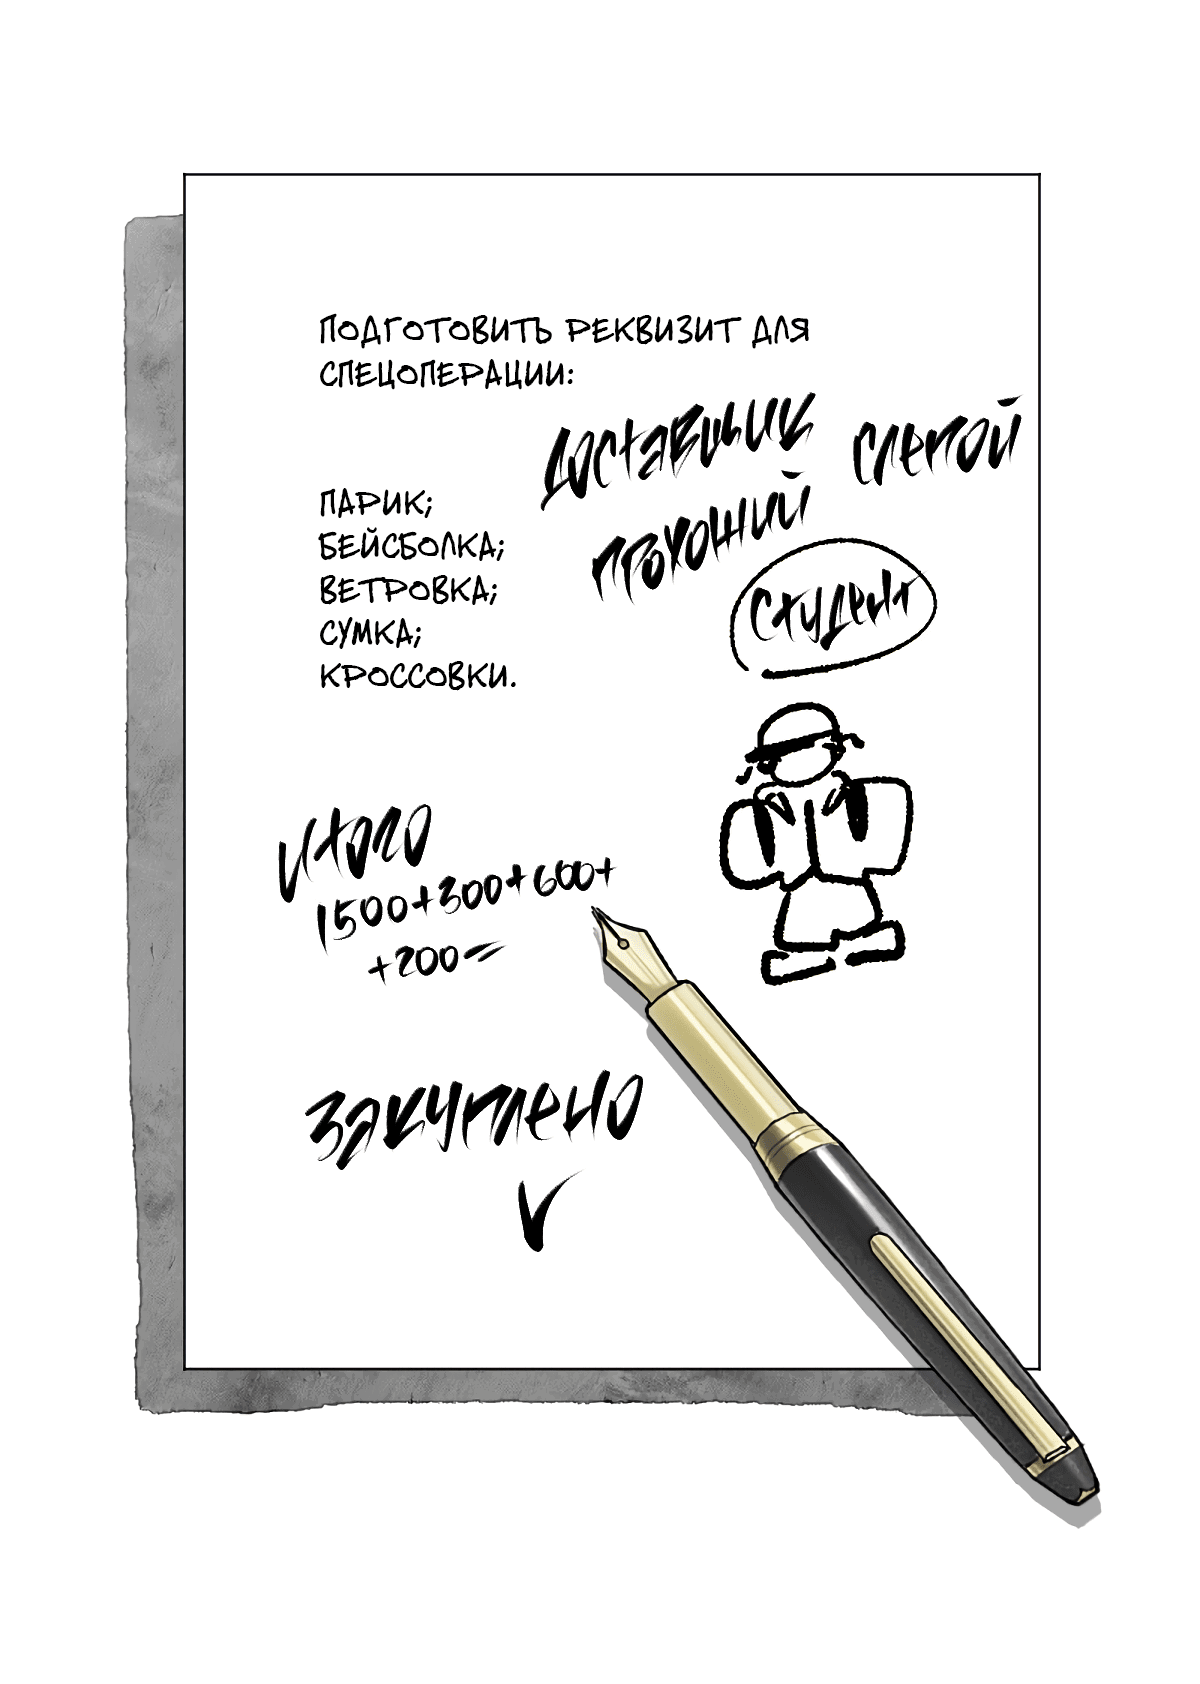 ПОДГОТОВИТЬ РЕКВИЗИТ ДЛЯ
СПЕЦОПЕРАЦИИ:
доставщик
слепой
прохожий
студент
ПАРИК;
БЕЙСБОЛКА;
ВЕТРОВКА;
СУМКА;
КРОССОВКИ.
итого
1500+300+600+
+200=
закуплено